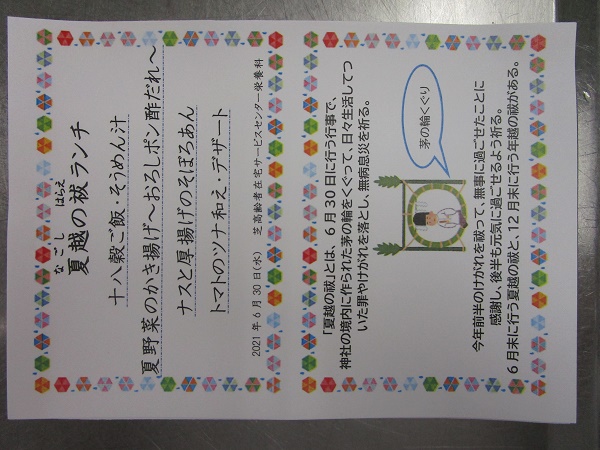 なごし はらえ
夏越の祓ランチ
十八穀ご飯・そうめん汁
夏野菜のかき揚げ～おろしポン酢だれ～
ナスと厚揚げのそぼろあん
トマトのツナ和え・デザート
2021年6月30日(水) 芝高齢者在宅サービスセンター栄養科
「夏越の祓」とは、6月30日に行う行事で、
神社の境内に作られた茅の輪をくぐって、日々生活してつ
いた罪やけがれを落とし、無病息災を祈る。
茅の輪くぐり
今年前半のけがれを祓って、無事に過ごせたことに
感謝し、後半も元気に過ごせるよう祈る。
6月末に行う夏越の祓と、12月末に行う年越の祓がある。